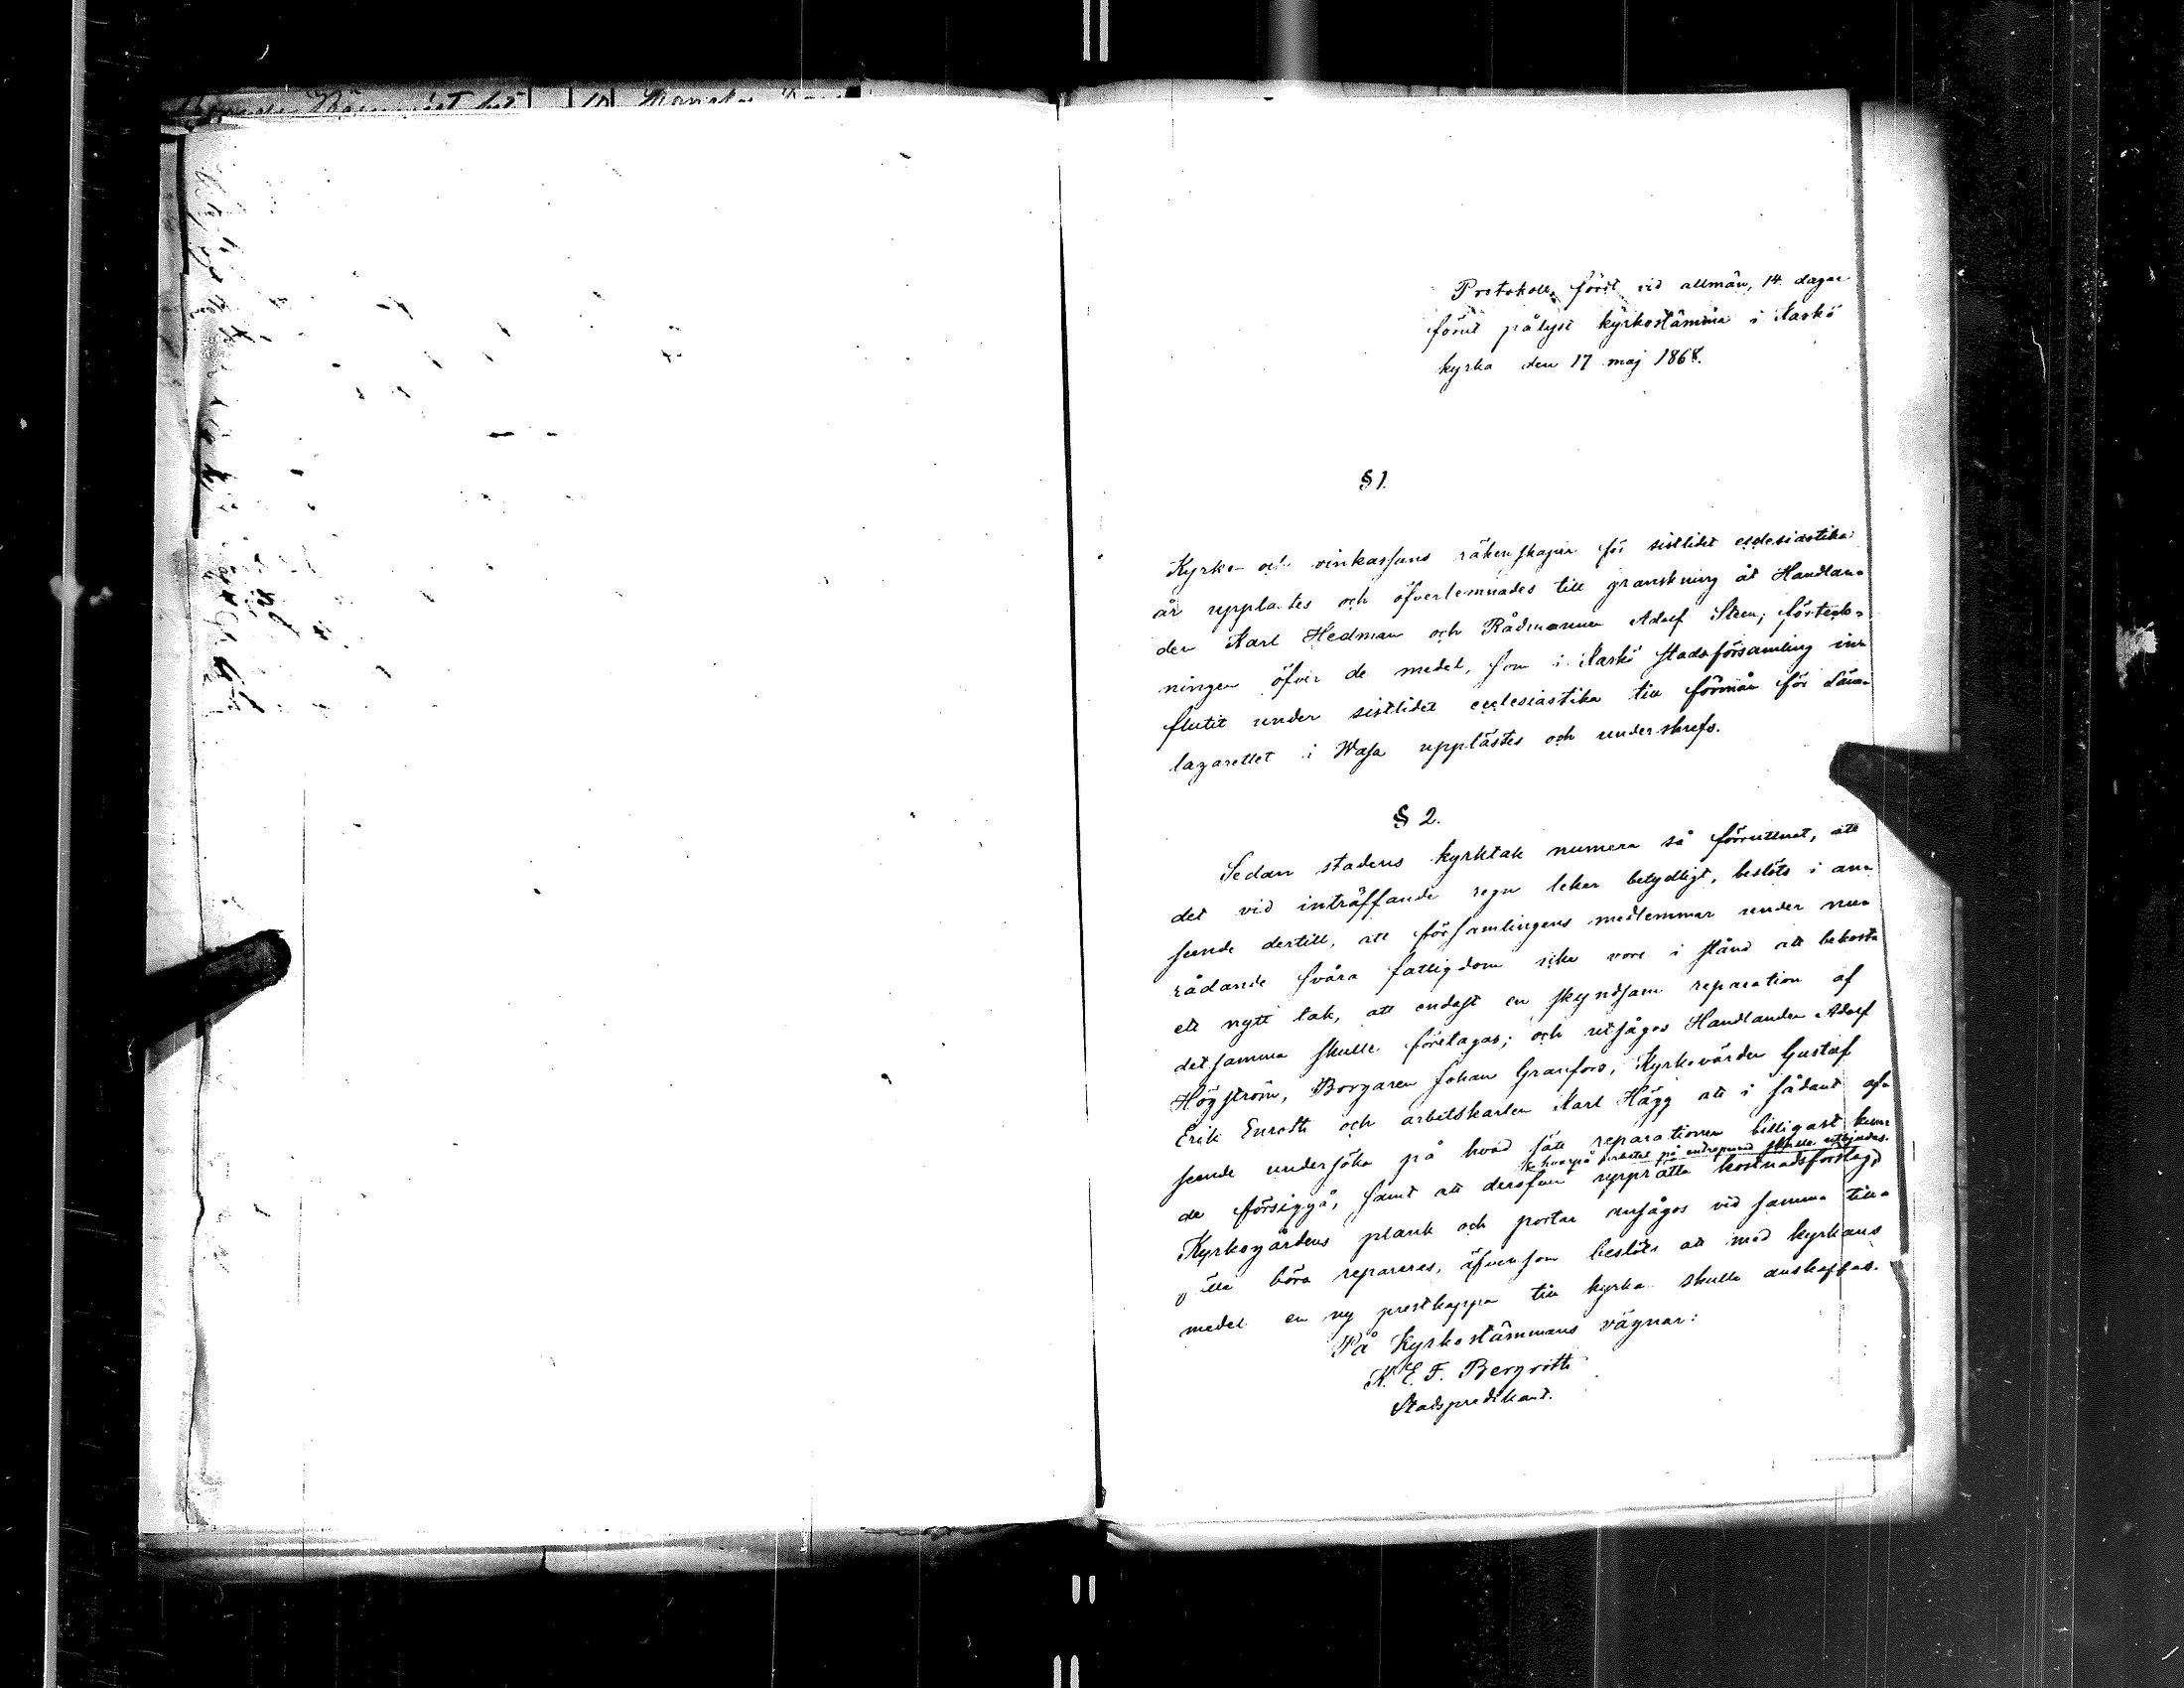 Protokoll, fördt vid allmän, 14 dagar
förut pålyst kyrkostämma i Kaskö
kyrka den 17 maj 1868.
§ 1.
Kyrko- och vinkassans räkenskaper för sistlidet ecclesiastika
år upplästes och öfverlemnades till granskning åt Handlan-
den Karl Hedman och Rådmannen Adolf Steen; förteck-
ningen öfver de medel, som i Kaskö stadsförsamling in-
flutit under sistlidet ecclesiastika till förmån för Läns-
lazarettet i Wasa upplästes och underskrefs.
§ 2.
Sedan stadens kyrktak numera så förruttnat, att
det vid inträffande regn leker betydligt, beslöts i an-
seende dertill, att församlingens medlemmar under nu-
rådande svåra fattigdom icke vore i stånd att bekosta
ett nytt tak, att endast en skyndsam reparation af
detsamma skulle företagas; och utsågos Handlanden Adolf
Högström, Borgaren Johan Granfors, Kyrkovärden Gustaf
Erik Enroth och arbetskarlen Karl Hägg att i sådant af-
seende undersöka på hvad sätt reparationen billigast kun-
de försiggå, samt att deröfver upprätta kostnadsförslag,
hvarpå arbetet på entreprenad skulle utbjudas.
Kyrkogårdens plank och portar ansågos vid samma till-
fälle böra repareras, äfvensom beslöts att med kyrkans
medel en ny prestkappa till kyrkan skulle anskaffas.
På Kyrkostämmans vägnar:
K. E. F. Bergroth
Stadspredikant.